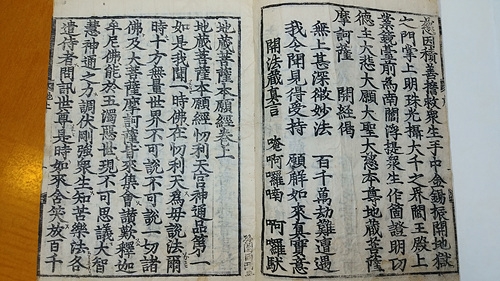 慈因積善誓救衆生手中金錫振開地獄
之門掌上明珠光攝大千之界閻王殿上
業鏡臺前爲南閻浮提衆生作箇證明功
德主大悲大願大聖大慈本尊地藏菩薩
摩訶薩 開經偈
無上甚深微妙法 百千萬劫難遭遇
我今聞見得受持 願解如來眞實意
開法藏眞言 唵 阿囉喃 阿囉馱
地藏菩薩本願經卷上
地藏菩薩本願經忉利天宮神通品第一
如是我聞一時佛在忉利天爲母說法爾
時十方無量世界不可說不可說一切諸
佛及大菩薩摩訶薩皆來集會讚歎釋迦
牟尼佛能於五濁惡世現不可思議大智
慧神通之力調伏剛强衆生知苦樂法各
遣侍者問訊世尊是時如來含笑放百千